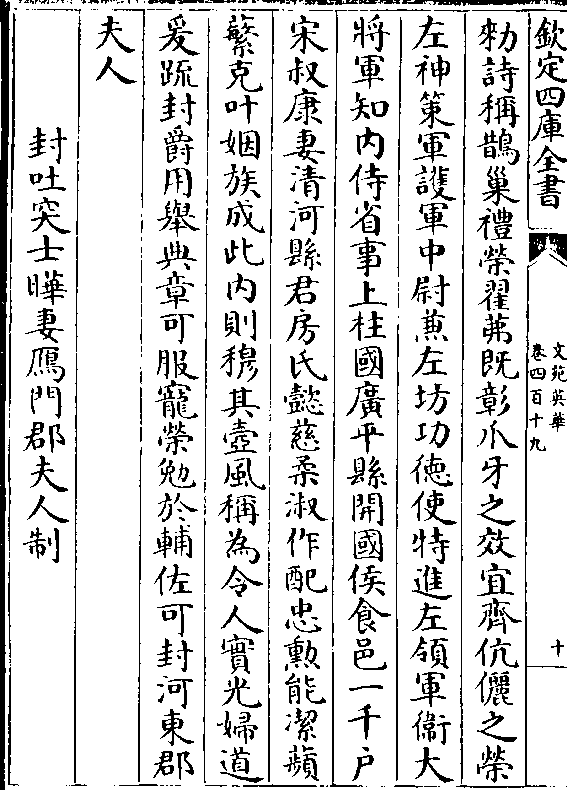 欽定四庫全書
文苑英華
卷四百十九
十
勑詩稱鵲巢禮榮翟茀既彰爪牙之效宜齊伉儷之榮
左神策軍護軍中尉兼左坊功德使特進左領軍衞大
將軍知内侍省事上柱國廣平縣開國侯食邑一千户
宋叔康妻清河縣君房氏懿慈柔淑作配忠勲能潔蘋
蘩克叶姻族成此内則穆其壼風稱為令人實光婦道
爰疏封爵用舉典章可服寵榮勉於輔佐可封河東郡
夫人
封吐突士曄妻鴈門郡夫人制